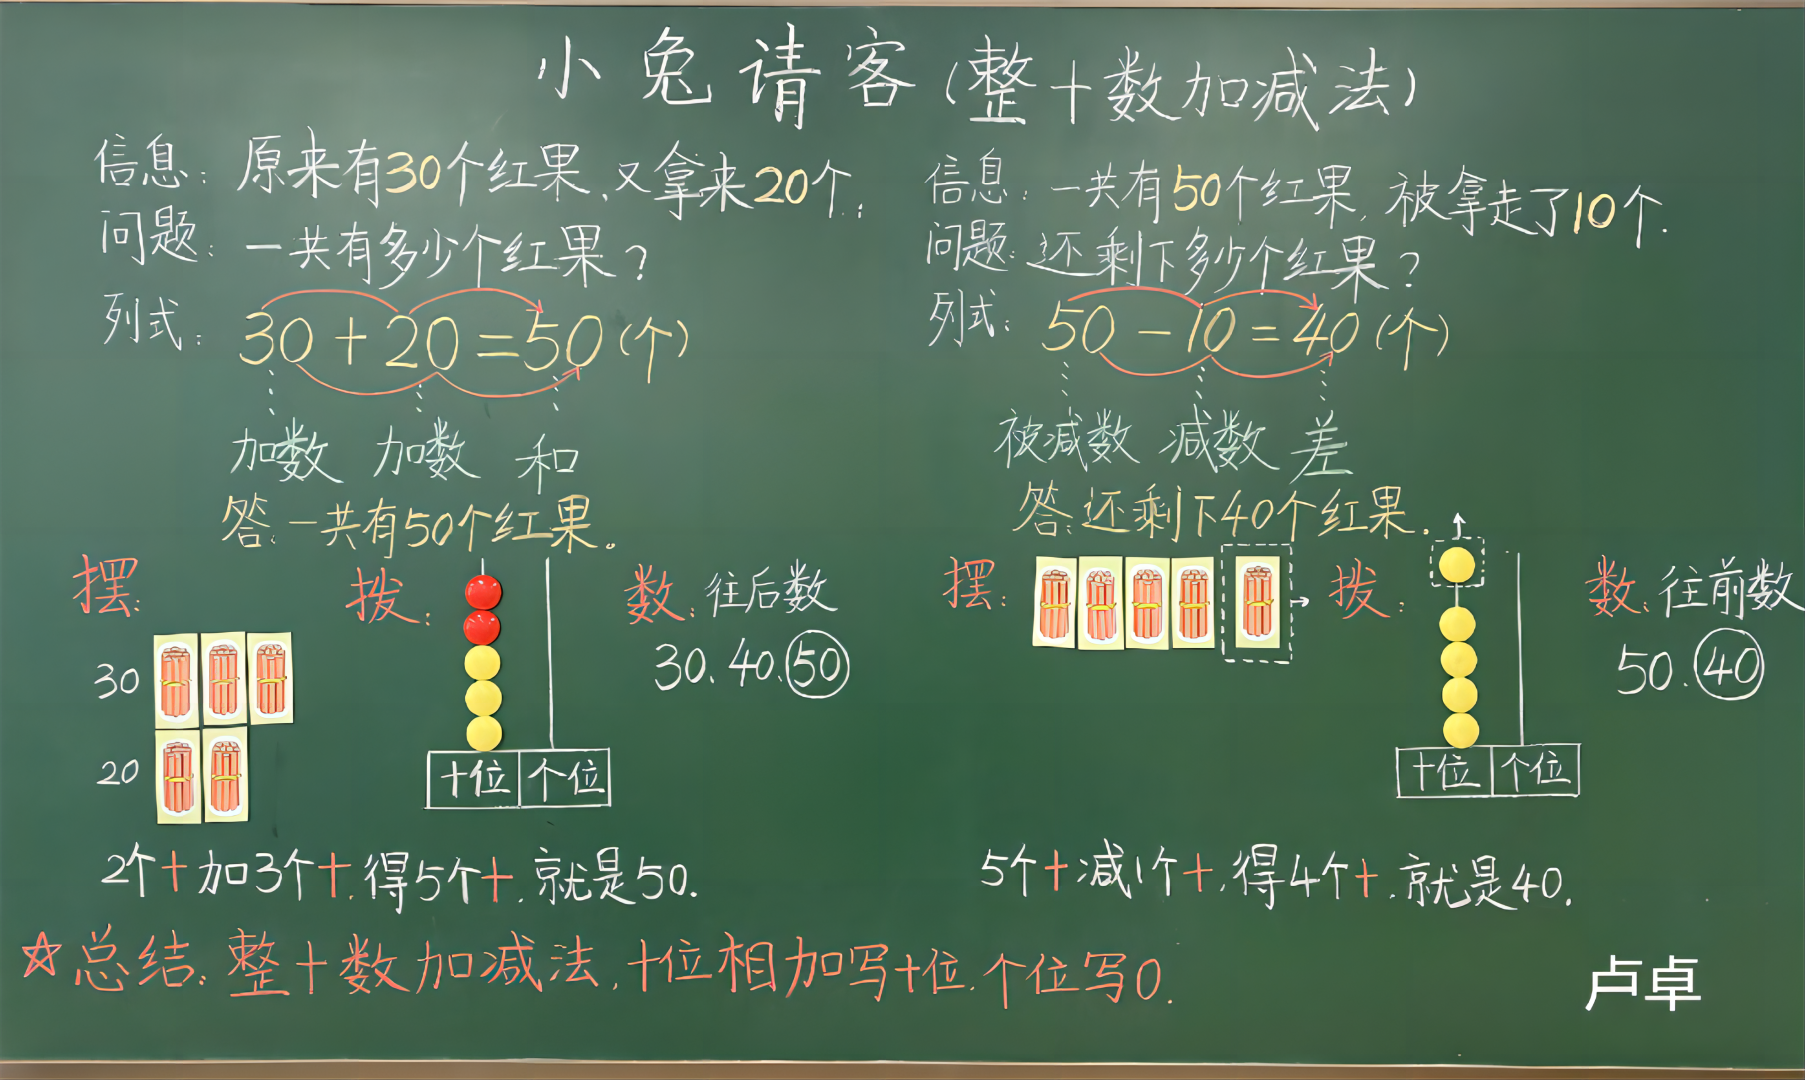 小兔请客(整十数加减法)
信息:原来有30个红果,又拿来20个.
问题:一共有多少个红果?
列式:30+20=50(个)
加数 加数 和
答:一共有50个红果。
摆: 拨: 数:往后数
30
20
30、40、50
十位 个位
2个十加3个十,得5个十,就是50.
信息:一共有50个红果,被拿走了10个.
问题:还剩下多少个红果?
列式:50-10=40(个)
被减数 减数 差
答:还剩下40个红果.
摆: 拨: 数:往前数
50、40
十位 个位
5个十减1个十,得4个十,就是40.
☆总结:整十数加减法,十位相加写十位,个位写0.
卢卓